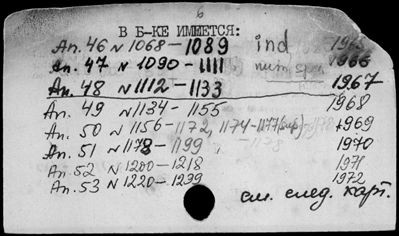 6
В Б-КЕ ИМЕЕТСЯ:
Ап. 46 N 1068-1089 ind 1965
Ап. 47 N 1090-1111 num. 1966
Ап. 48 N 1112-1133 1967
Ап. 49 N 1134-1155 1968
Ап. 50 N 1156-1172, 1174-1177 1969
Ап. 51 N 1178-1199 1970
Ап. 52 N 1200-1218 1971
Ап. 53 N 1220-1239 1972
см. след. карт.